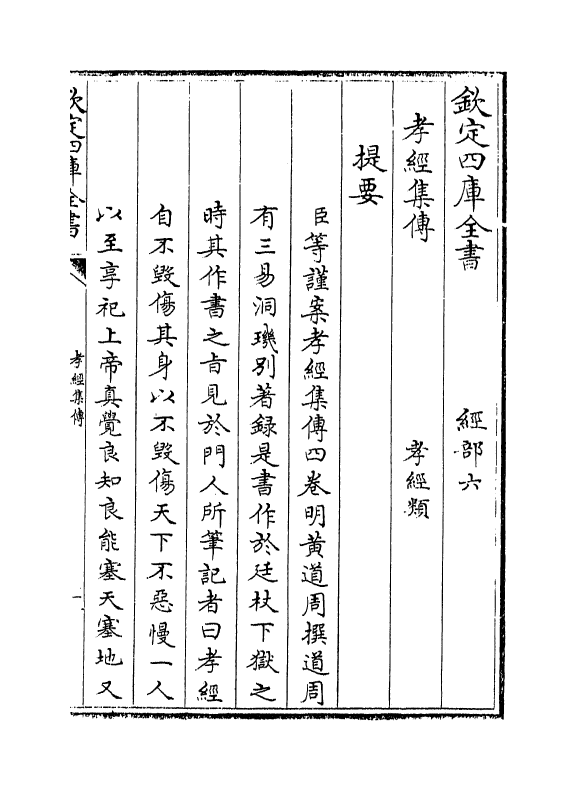 欽定四庫全書　經部六
孝經集傳　孝經類
提要
臣等謹案孝經集傳四卷明黃道周撰道周
有三易洞璣別著録是書作於廷杖下獄之
時其作書之㫖見於門人所筆記者曰孝經
自不毀傷其身以不毀傷天下不惡慢一人
以至享祀上帝真覺良知良能塞天塞地又
欽定四庫全書
孝經集傳
一